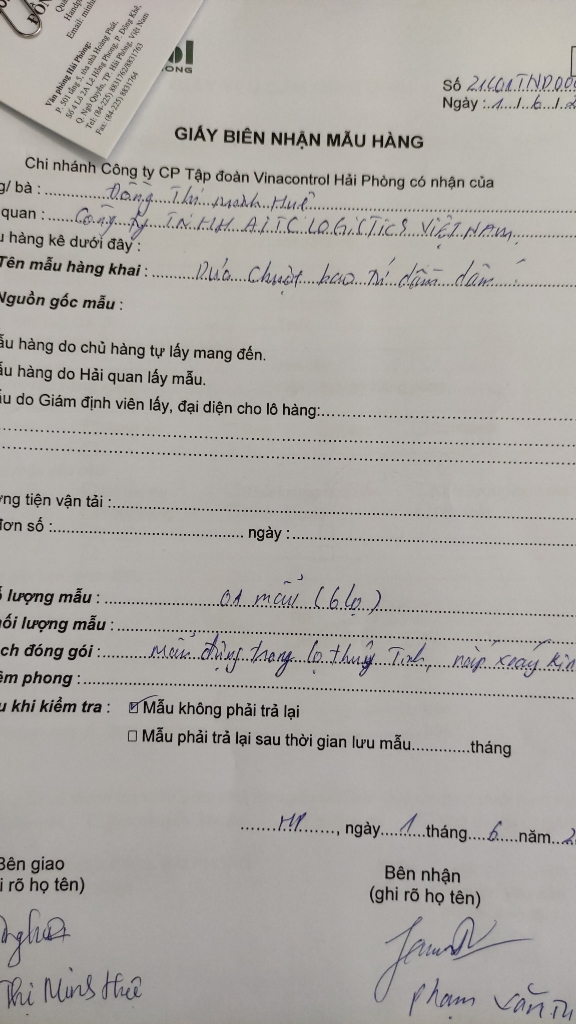 Văn phòng Hải Phòng:
P. 501 tầng 5, tòa nhà Hoàng Phát,
Số 4 Lô 2A Lê Hồng Phong, P. Đông Khê,
Q. Ngô Quyền, TP. Hải Phòng, Việt Nam
Tel: (84-225) 8831762/8831763
Fax: (84-225) 8831764
Email:
ol
ONG
Số 21C01TND00
Ngày : 1 / 6 / 2
GIẤY BIÊN NHẬN MẪU HÀNG
Chi nhánh Công ty CP Tập đoàn Vinacontrol Hải Phòng có nhận của
g/ bà : Đồng Thị Minh Huệ
quan : Công ty TNHH AITC LOGICTICS VIỆT NAM.
u hàng kê dưới đây :
Tên mẫu hàng khai : Dưa chuột bao tử dầm dấm
Nguồn gốc mẫu :
ẫu hàng do chủ hàng tự lấy mang đến.
ẫu hàng do Hải quan lấy mẫu.
ẫu do Giám định viên lấy, đại diện cho lô hàng:
ơng tiện vận tải :
đơn số : ngày :
ố lượng mẫu : 01 mẫu (6 lọ)
hối lượng mẫu :
ách đóng gói : Mẫu đựng trong lọ thủy tinh, nắp xoáy kín
êm phong :
u khi kiểm tra : ☑ Mẫu không phải trả lại
☐ Mẫu phải trả lại sau thời gian lưu mẫu.............tháng
HP, ngày 1 tháng 6 năm 2
Bên giao
Bên nhận
i rõ họ tên)
(ghi rõ họ tên)
Thị Minh Huệ
Phạm Văn